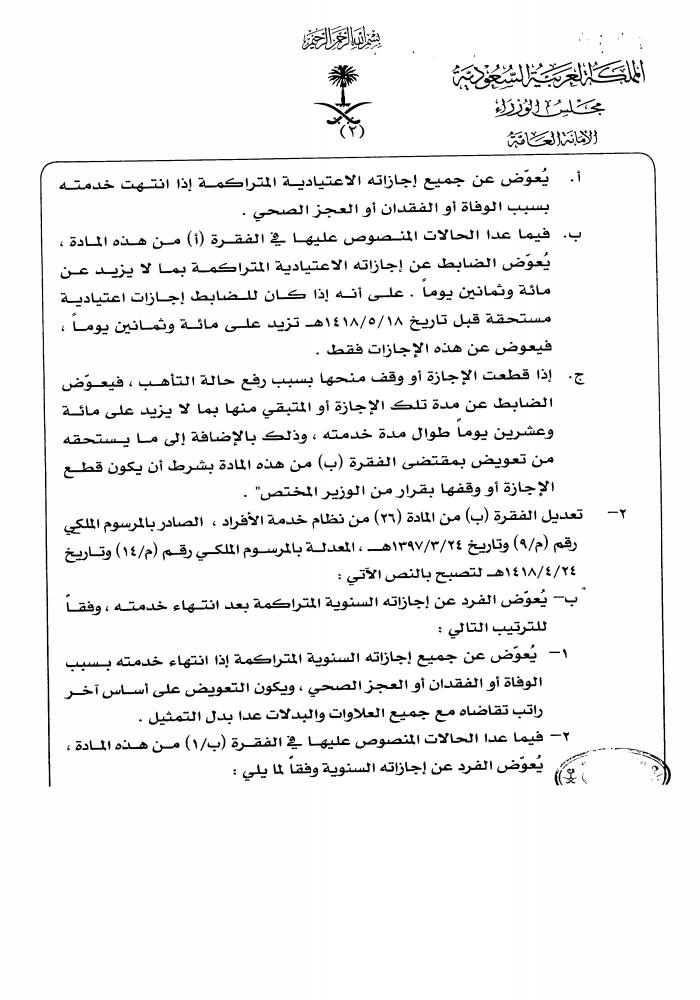 بسم الله الرحمن الرحيم
المملكة العربية السعودية
مجلس الوزراء
الأمانة العامة
(٢)
أ. يُعوّض عن جميع إجازاته الاعتيادية المتراكمة إذا انتهت خدمته
بسبب الوفاة أو الفقدان أو العجز الصحي .
ب. فيما عدا الحالات المنصوص عليها في الفقرة (أ) من هذه المادة ،
يُعوّض الضابط عن إجازاته الاعتيادية المتراكمة بما لا يزيد عن
مائة وثمانين يوماً . على أنه إذا كان للضابط إجازات اعتيادية
مستحقة قبل تاريخ ١٤١٨/٥/١٨هـ تزيد على مائة وثمانين يوماً ،
فيعوض عن هذه الإجازات فقط .
ج. إذا قطعت الإجازة أو وقف منحها بسبب رفع حالة التأهب ، فيعوّض
الضابط عن مدة تلك الإجازة أو المتبقي منها بما لا يزيد على مائة
وعشرين يوماً طوال مدة خدمته ، وذلك بالإضافة إلى ما يستحقه
من تعويض بمقتضى الفقرة (ب) من هذه المادة بشرط أن يكون قطع
الإجازة أو وقفها بقرار من الوزير المختص" .
٢- تعديل الفقرة (ب) من المادة (٢٦) من نظام خدمة الأفراد ، الصادر بالمرسوم الملكي
رقم (م/٩) وتاريخ ١٣٩٧/٣/٢٤هـ ، المعدلة بالمرسوم الملكي رقم (م/١٤) وتاريخ
١٤١٨/٤/٢٤هـ لتصبح بالنص الآتي :
"ب- يُعوّض الفرد عن إجازاته السنوية المتراكمة بعد انتهاء خدمته ، وفقاً
للترتيب التالي :
١- يُعوّض عن جميع إجازاته السنوية المتراكمة إذا انتهاء خدمته بسبب
الوفاة أو الفقدان أو العجز الصحي ، ويكون التعويض على أساس آخر
راتب تقاضاه مع جميع العلاوات والبدلات عدا بدل التمثيل .
٢- فيما عدا الحالات المنصوص عليها في الفقرة (ب/١) من هذه المادة ،
يُعوّض الفرد عن إجازاته السنوية وفقاً لما يلي :